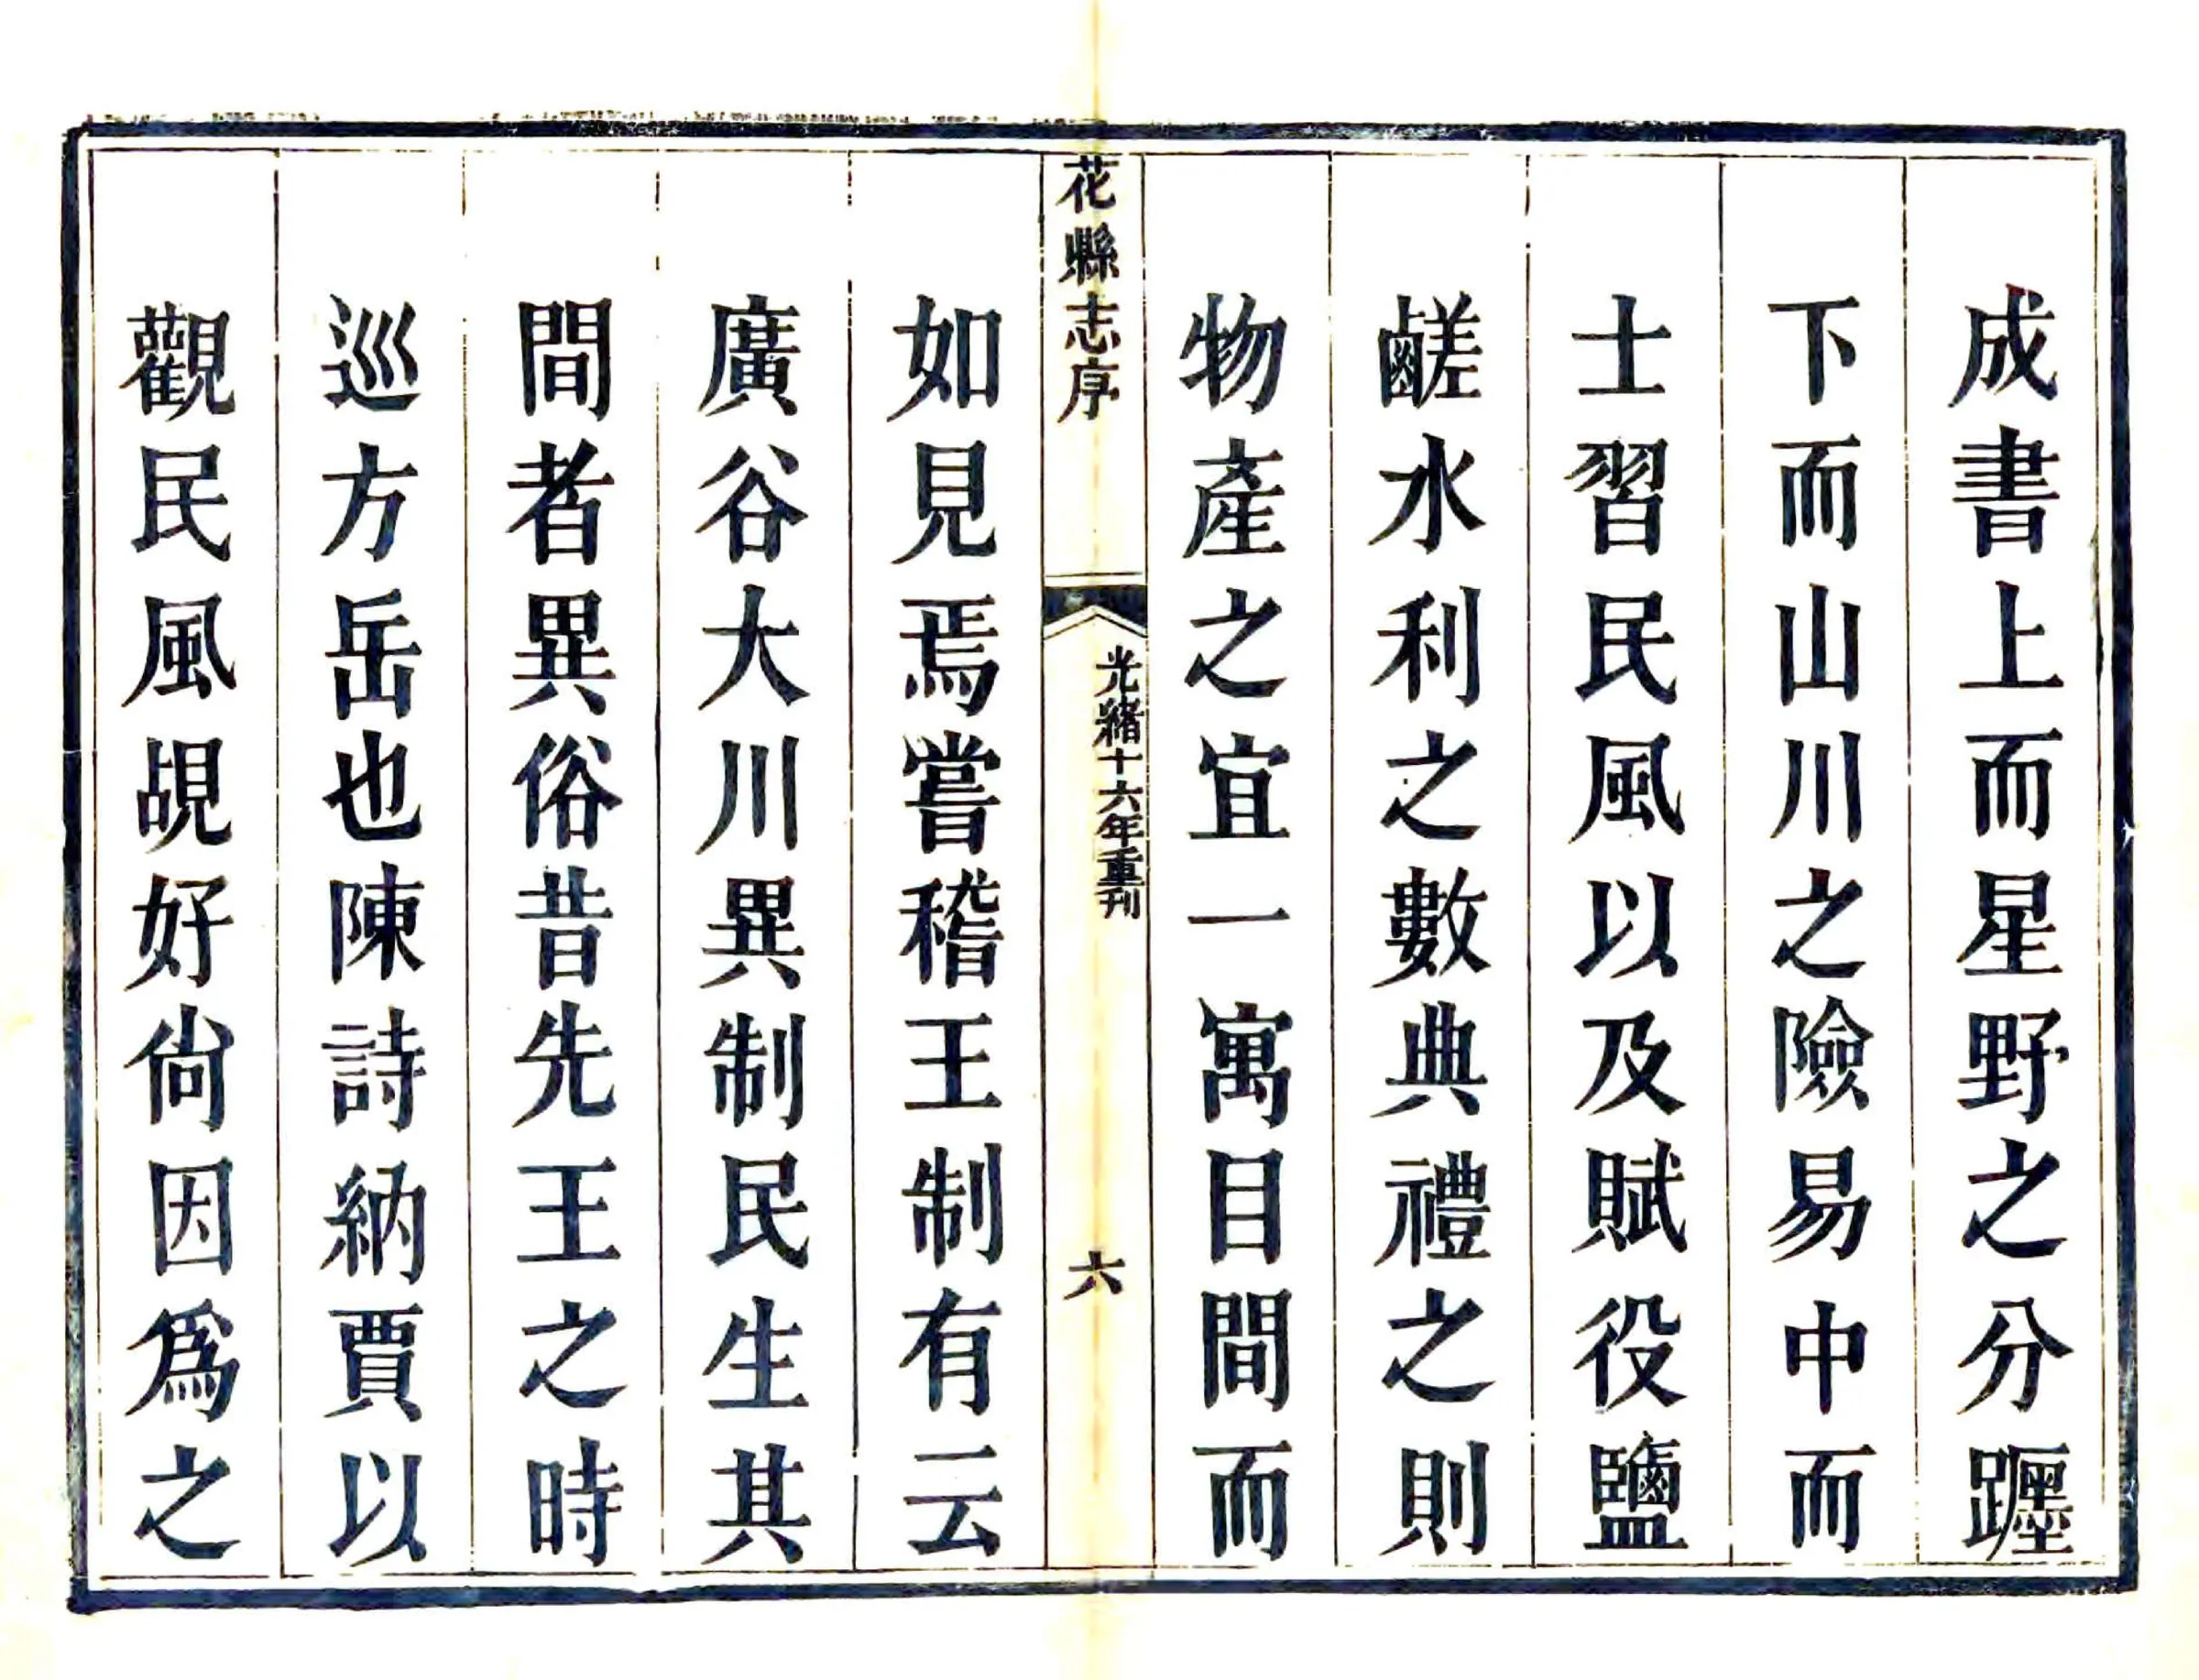 成書上而星野之分躔
下而山川之險易中而
士習民風以及賦役鹽
鹺水利之數典禮之則
物產之宜一寓目間而
花縣志序
光緒十六年重刊
六
如見焉嘗稽王制有云
廣谷大川異制民生其
間者異俗昔先王之時
巡方岳也陳詩納賈以
觀民風覘好尙因爲之